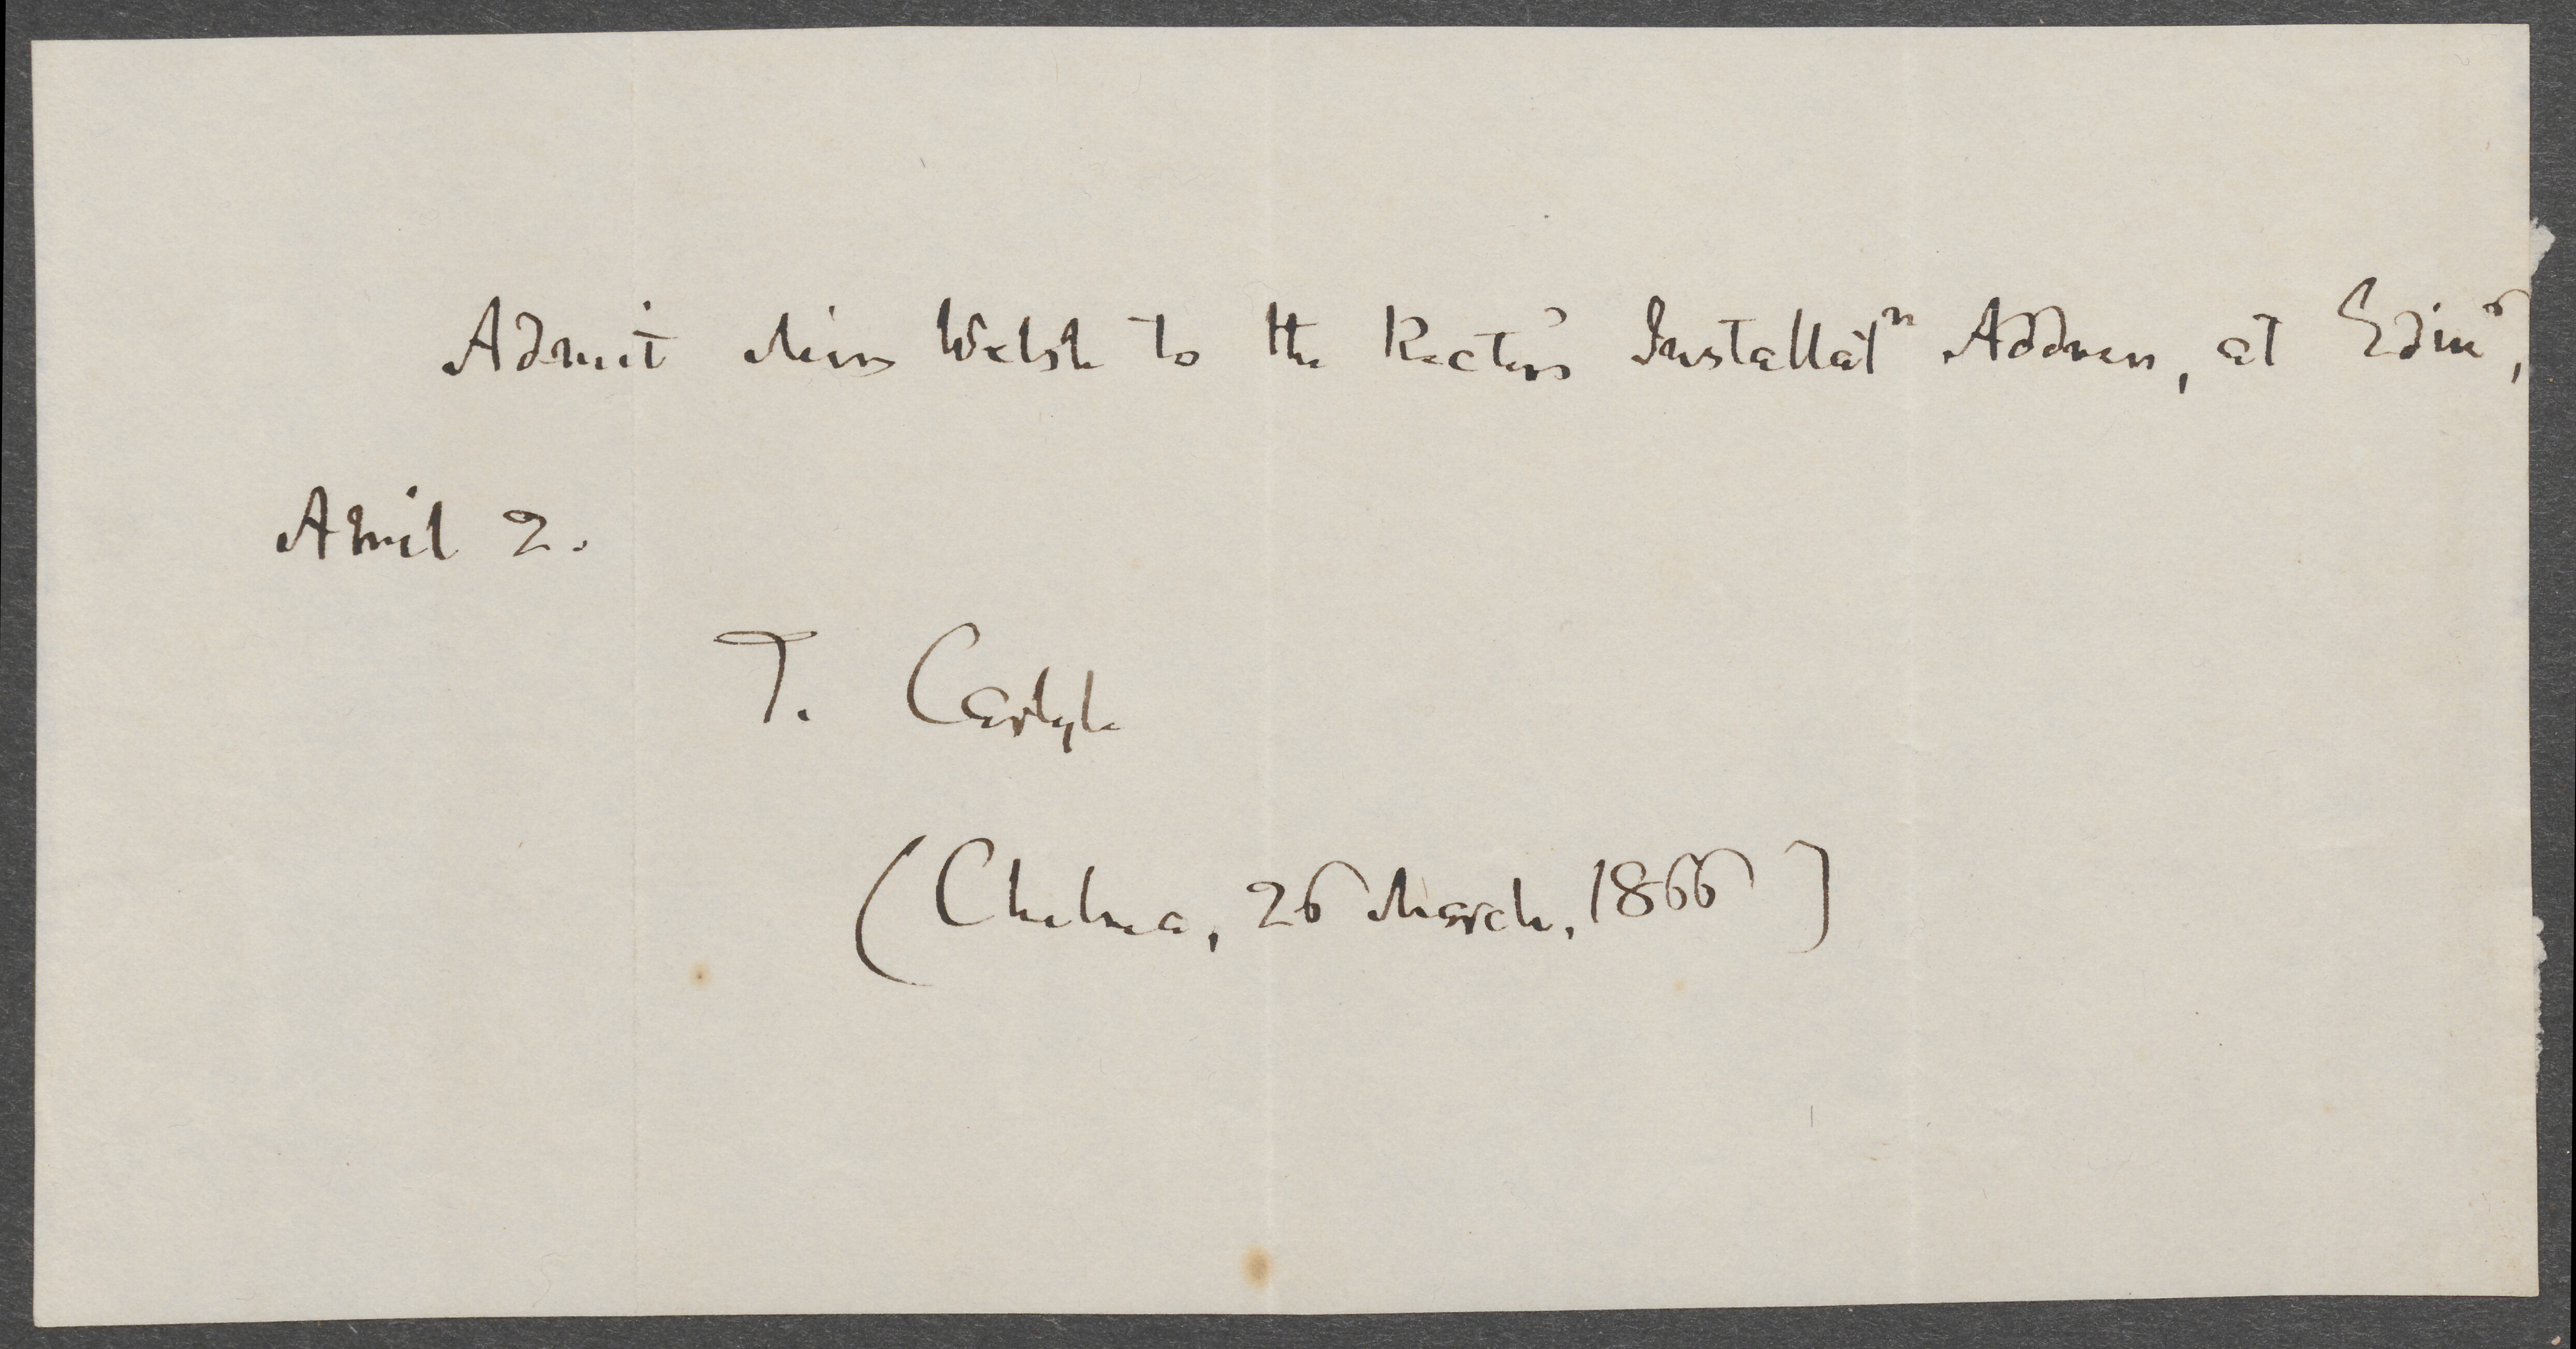 Admit Miss Welsh to the Rector's Installatⁿ Address, at Edinʳ,
April 2.
T. Carlyle
(Chelsea, 26 March, 1866)